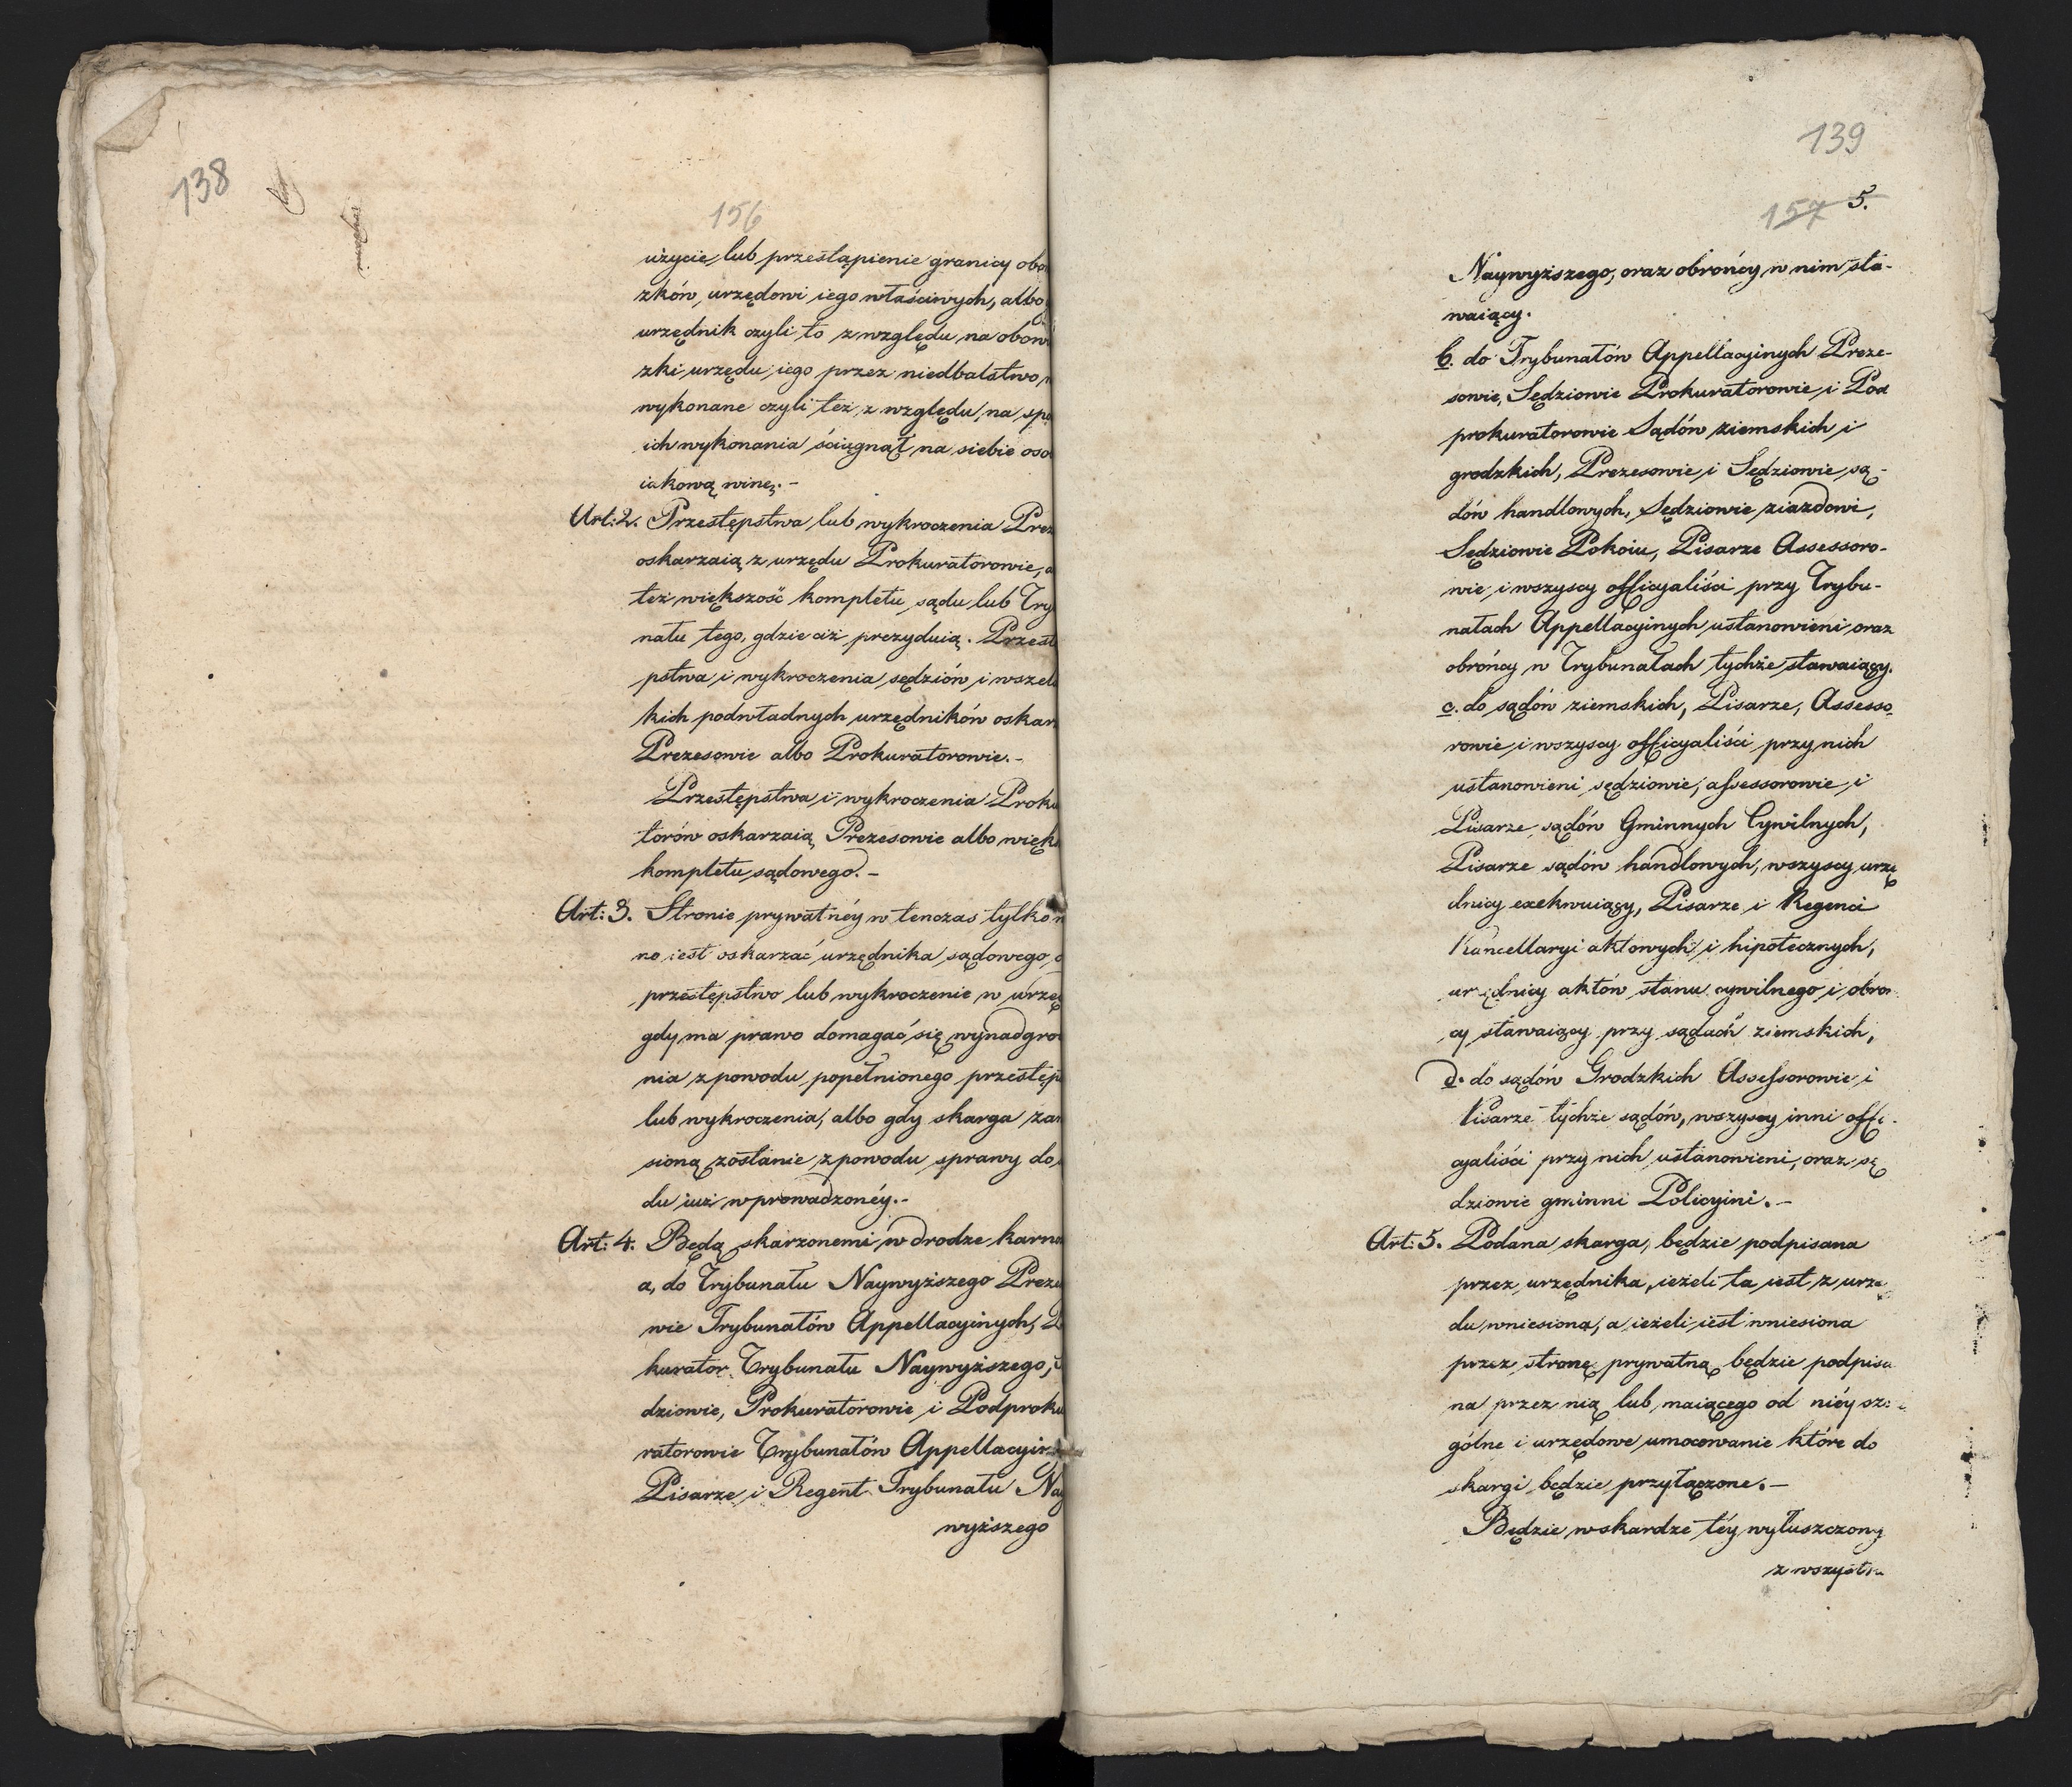 138
156
użycie lub przestąpienie granicy obo
zków urzędowi iego właściwych, albo
urzędnik czyli to z względu na obow
zki urzędu iego przez niedbalstwo
wykonane czyli też z względu na spo
ich wykonania ściągnął na siebie oso
iakową winę.-
Art: 2. Przestępstwa lub wykroczenia Prez
oskarzaią z urzędu Prokuratorowie, a
też większość kompletu sądu lub Try
nału tego, gdzie ciż prezyduią. Przest
pstwa i wykroczenia sędziów i wszel
kich podwładnych urzędników oskar
Prezesowie albo Prokuratorowie.-
Przestępstwa i wykroczenia Proku
torów oskarzaią Prezesowie albo więk
kompletu sądowego.-
Art: 3. Stronie prywatnéy w tenczas tylko
no iest oskarzać urzędnika sądowego o
przestępstwo lub wykroczenie w urzę
gdy ma prawo domagać się wynadgro
nia z powodu popełnionego przestęp
lub wykroczenia, albo gdy skarga zan
sioną zostanie z powodu sprawy do
du iuż wprowadzonéy.-
Art: 4. Będą skarzonemi w drodze karn
a, do Trybunału Naywyższego Preze
wie Trybunałów Appellacyinych, P
kurator Trybunału Naywyższego,
dziowie, Prokuratorowie i Podproku
ratorowie Trybunałów Appellacyin
Pisarze i Regent Trybunału Nay
wyższego
139
157 5.
Naywyższego, oraz obrońcy w nim sta-
waiący.
b. do Trybunałów Appellacyinych Preze-
sowie, Sędziowie Prokuratorowie i Pod
prokuratorowie Sądów ziemskich i
grodzkich, Prezesowie i Sędziowie są-
dów handlowych, Sędziowie ziazdowi,
Sędziowie Pokoiu, Pisarze Assessoro-
wie i wszyscy officyaliści przy Trybu-
nałach Appellacyinych ustanowieni oraz
obrońcy w Trybunałach tychże stawaiący.
c. do sądów ziemskich, Pisarze, Assesso
rowie i wszyscy officyaliści przy nich
ustanowieni sędziowie, assessorowie i
Pisarze sądów Gminnych Cywilnych,
Pisarze sądów handlowych, wszyscy urzę
dnicy exekwuiący, Pisarze i Regenci
Kancellaryi aktowych i hipotecznych,
urzędnicy aktów stanu cywilnego i obroń
cy stawaiący przy sądach ziemskich,
d. do sądów Grodzkich Assessorowie i
Pisarze tychże sądów, wszyscy inni offi-
cyaliści przy nich ustanowieni, oraz sę
dziowie gminni Policyini.-
Art: 5. Podana skarga, będzie podpisana
przez urzędnika, ieżeli ta iest z urzę
du wniesioną, a ieżeli iest wniesiona
przez stronę prywatną będzie podpisa
na przez nią lub maiącego od niéy sz
gólne i urzędowe umocowanie które do
skargi będzie przyłączone.-
Będzie w skardze téy wyłuszczony
z wszystk